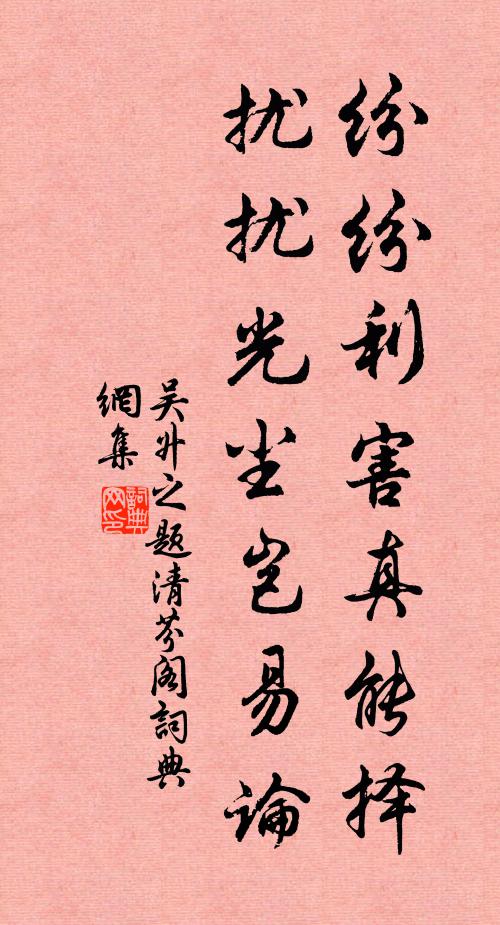 纷纷利害真能择
扰扰光尘岂易论
吴升之题清芬阁詞典
網集
詞典网印